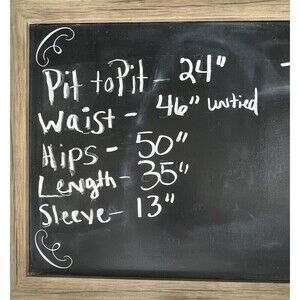 Pit to Pit - 24"
Waist - 46" untied
Hips - 50"
Length - 35"
Sleeve - 13"